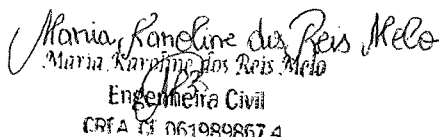 Maria Karoline dos Reis Melo
Maria Karoline dos Reis Melo
Engenheira Civil
CREA CE 061989867 4